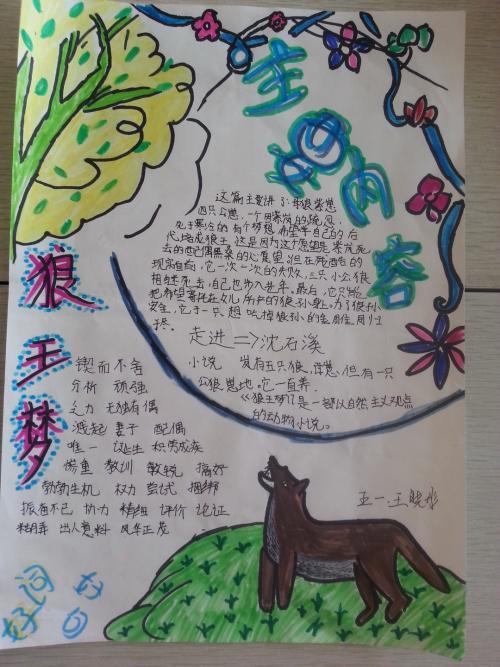 主要内容
狼王梦
这篇主要讲了:母狼紫岚
四只公崽,一个因紫岚的疏忽,
死于寒冷的 有个梦想,希望华自己的后
代培成狼王,这是因为这个愿望是紫岚死
去的配偶黑桑的心愿里,但在残酷的
现实面前,它一次一次的失败,三只小公狼
相继死去,自己也步入老年,最后,它只能
把希望寄托在女儿所产的狼孙身上。为了狼孙
安全,它于一只想吃掉狼孙的金雕同归于
尽。
走进=>沈石溪
小说 岚有五只狼,崽但有一只
公狼崽地它一自养.
《狼王梦》了是一部以自然主义观点
的动物小说。
锲而不舍
分析 顽强
乏力 无独有偶
溅起 妻子 配偶
唯一 诞生 积劳成疾
惨重 教训 敏锐 搞好
勃勃生机 权力 尝试 捆绑
协力 精细 评价 论证
出人意料 风华正茂
五一:王晓彤
好词好句